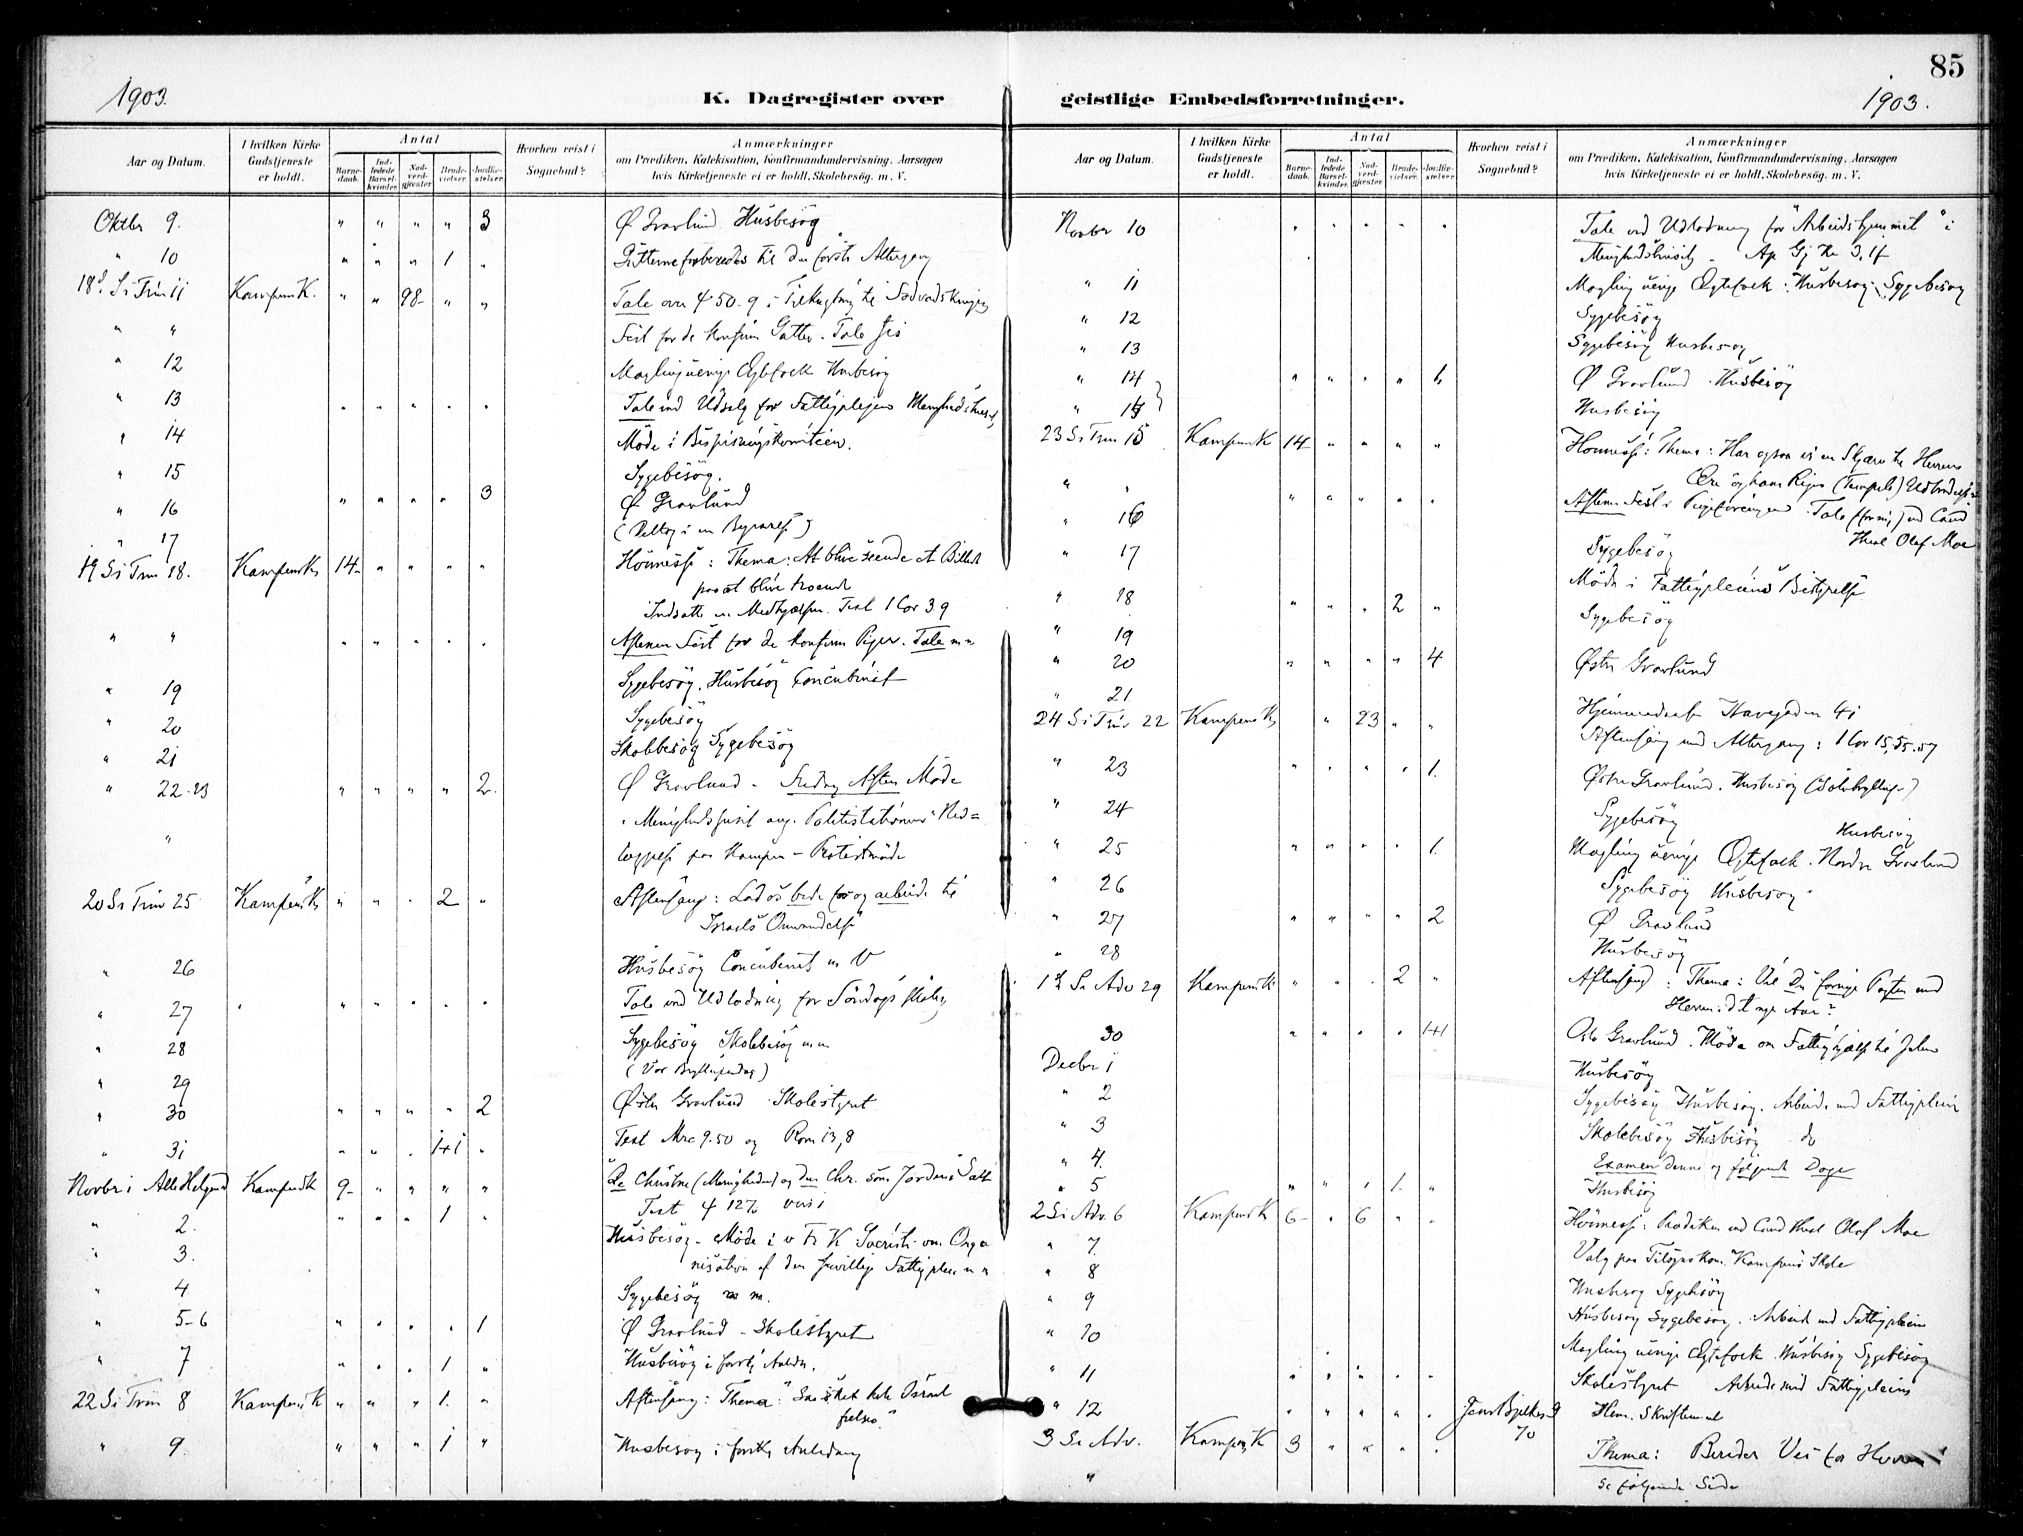 85
1903.
K. Dagregister over geistlige Embedsforretninger.
1903.
Aar og Datum.
I hvilken Kirke Gudstjeneste er holdt.
Antal
Barnedaab.
Indledede Barselkvinder.
Nadverdgjester.
Brudevielser.
Jordfæstelser.
Hvorhen reist i Sognebud?
Anmærkninger
om Prædiken, Katekisation, Konfirmandundervisning, Aarsagen
hvis Kirketjeneste ei er holdt, Skolebesög, m. V.
Oktbr 9. " " " " 3 Ø Gravlund Husbesøg
" 10 " " " 1 " Gutterne forberedes til den første Altergang
18d S. e Trin 11 Kampen K. " " 98 " " Tale over ψ 50.9
" " Fest for de konfirm Gutter. Tale
" 12 Mægling uenige Ægtefolk Husbesøg
" 13 " " " " " Tale ved Udsalg for Fattigplejens
" 14 Møde i Bespisningskomiteen.
" 15 Sygebesøg.
" 16 " " " " 3 Ø Gravlund
" 17
19 S e Trin 18. Kampens K 14 " " " " Høimesse: Thema: At blive seende et Billede
paa at blive troende
Text 1 Cor 3 9
" " " " " " " Aftenen Fest for de konfirm Piger. Tale m m
" 19 Sygebesøg. Husbesøg Concubinat
" 20 Sygebesøg
" 21 Skolebesøg Sygebesøg
" 22-23 " " " " 2 Ø Gravlund - Fredag Aften Møde
i Menighedshuset ang. Politistationens Ned=
" læggelse paa Kampen - Protestmøde
20 S e Trin 25 Kampens K " " " 2 " Aftensang: Lad os bede for og arbeide til
Israels Omvendelse
" 26 Husbesøg Concubinat m V
" 27 " " " " " Tale ved Udlodning for Søndagsskolen
" 28 Sygebesøg Skolebesøg m m
" 29 (Vor Bryllupsdag)
" 30 " " " " 2 Østre Gravlund Skolestyret
" 31 " " " 1+1 " Text Mrc 9.50 og Rom 13,8
Novbr 1 Alle Helgend Kampens K 9 " " " " De Christne (Menigheden) og den Chr. som Jordens Salt
" 2. " " " 1 " Text ψ 127 vers 1
" 3. Husbesøg - Møde i v Fr K Sacristi om Orga
nisation af den frivillige Fattigpleie m m
" 4 Sygebesøg m m.
" 5-6 " " " " 1 Ø Gravlund - Skolestyret
" 7 " " " 1 " Husbesøg i forskj Anledn.
22 S e Trin 8 Kampens K " " " 1 " Aftensang: Thema: Saa skal hele Israel
frelses."
" 9. " " " 1 " Husbesøg i forskj Anledning
Aar og Datum.
I hvilken Kirke Gudstjeneste er holdt.
Antal
Barnedaab.
Indledede Barselkvinder.
Nadverdgjester.
Brudevielser.
Jordfæstelser.
Hvorhen reist i Sognebud?
Anmærkninger
om Prædiken, Katekisation, Konfirmandundervisning, Aarsagen
hvis Kirketjeneste ei er holdt, Skolebesög, m. V.
Novbr 10 " " " " " Tale ved Udlodning for "Arbeidshjemmet" i
Ap Gj
" 11 Mægling uenige Ægtefolk. Husbesøg. Sygebesøg
" 12 Sygebesøg
" 13 Sygebesøg Husbesøg
" 14 " " " " Ø Gravlund Husbesøg
" 15 Husbesøg
23 S e Trin 15 Kampens K 14 " " " " Høimesse: Thema: Har ogsaa vi en Skjærv til Herrens
" " " " " " " Ære og hans Riges (Tempels) Udbredelse
" 16 Aften. Fest i Pigeforeningen Tale ved Cand
Theol Olaf Moe
" 17 Sygebesøg
" 18 " " " 2 " Møde i Fattigpleiens Bestyrelse
" 19 Sygebesøg
" 20 " " " " 4 Østre Gravlund
" 21
24 S e Trin 22 Kampens K " 23 " " Havegaden 41
Aftensang med Altergang: 1 Cor 15,55-57
" 23 " " " " 1. Østre Gravlund. Husbesøg
" 24 Sygebesøg
Husbesøg
" 25 " " " " 1. Mægling uenige Ægtefolk. Nordre Gravlund
" 26 Sygebesøg Husbesøg
" 27 " " " " 2 Ø Gravlund
" 28 Husbesøg
1ste S i Adv 29 Kampens K " " " 2 " Aftensang: Thema: Vil Du fornye Pagten med
Herren i det nye Aar?
30 " " " " 1+1 Østre Gravlund. Møde om Fattighjælp til Julen
Decbr 1 Husbesøg
" 2 Sygebesøg Husbesøg. Arbeide med Fattigpleien
" 3 Skolebesøg Husbesøg do
" 4. Examen denne og følgende Dage
" 5 " " " 1. " Husbesøg
2 S i Adv. 6 Kampens K 6 " 6 " " Høimesse: Prædiken ved Cand theol Olaf Moe
" 7. Valg paa Tilsynskom. Kampens Skole
" 8 Husbesøg Sygebesøg
" 9 Husbesøg Sygebesøg. Arbeide med Fattigpleien
" 10 Mægling uenige Ægtefolk Husbesøg Sygebesøg
" 11 " " " " " Skolestyret Arbeide med Fattigpleiens
" 12 " " " " " Jens Bjelkes G 70 Hjem. Skriftemaal
3 S i Adv. Kampens K 3 " " " " Thema: Bereder Vei for Herren!
" se følgende Side